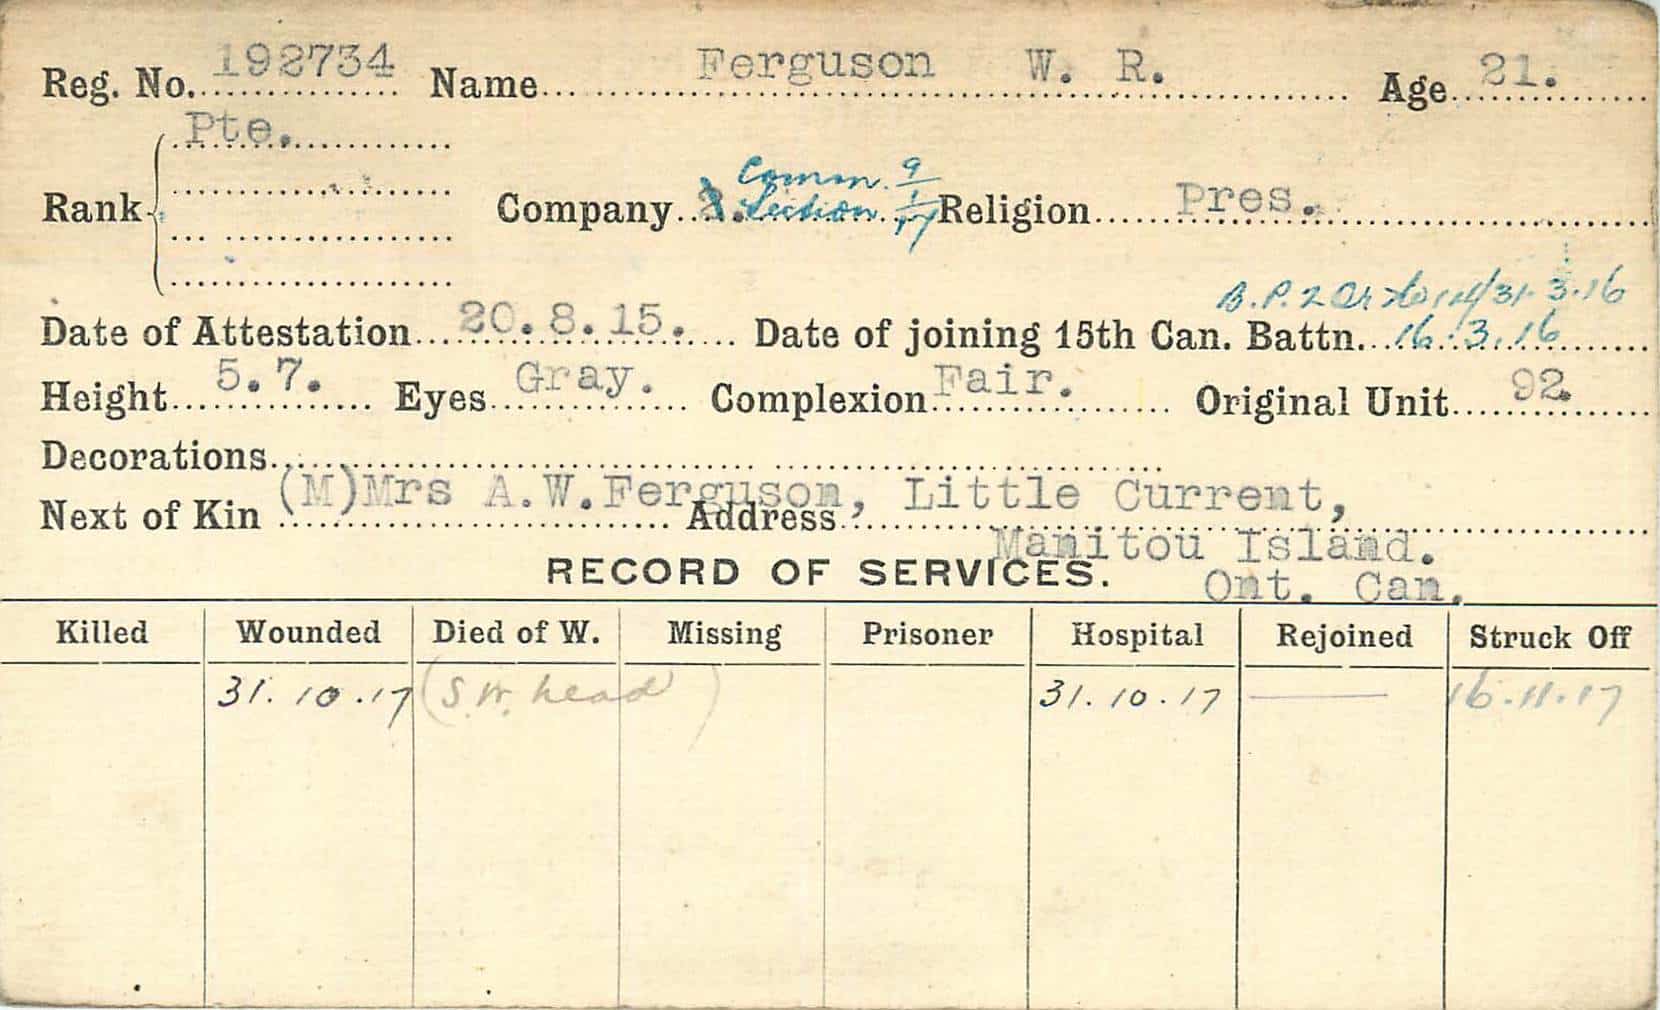 Reg. No. 192734 Name Ferguson W. R. Age 21.
Pte.
Comm. 9
Rank Company Section 1/17 Religion Pres.
B. P. 2 31.3.16
Date of Attestation 20.8.15. Date of joining 15th Can. Battn. 16.3.16
Height 5.7. Eyes Gray. Complexion Fair. Original Unit 92.
Decorations
Next of Kin (M)Mrs A.W.Ferguson, Address Little Current,
Manitou Island.
RECORD OF SERVICES. Ont. Can.
Killed Wounded Died of W. Missing Prisoner Hospital Rejoined Struck Off
31.10.17 (S.W. head) 31.10.17 16.11.17